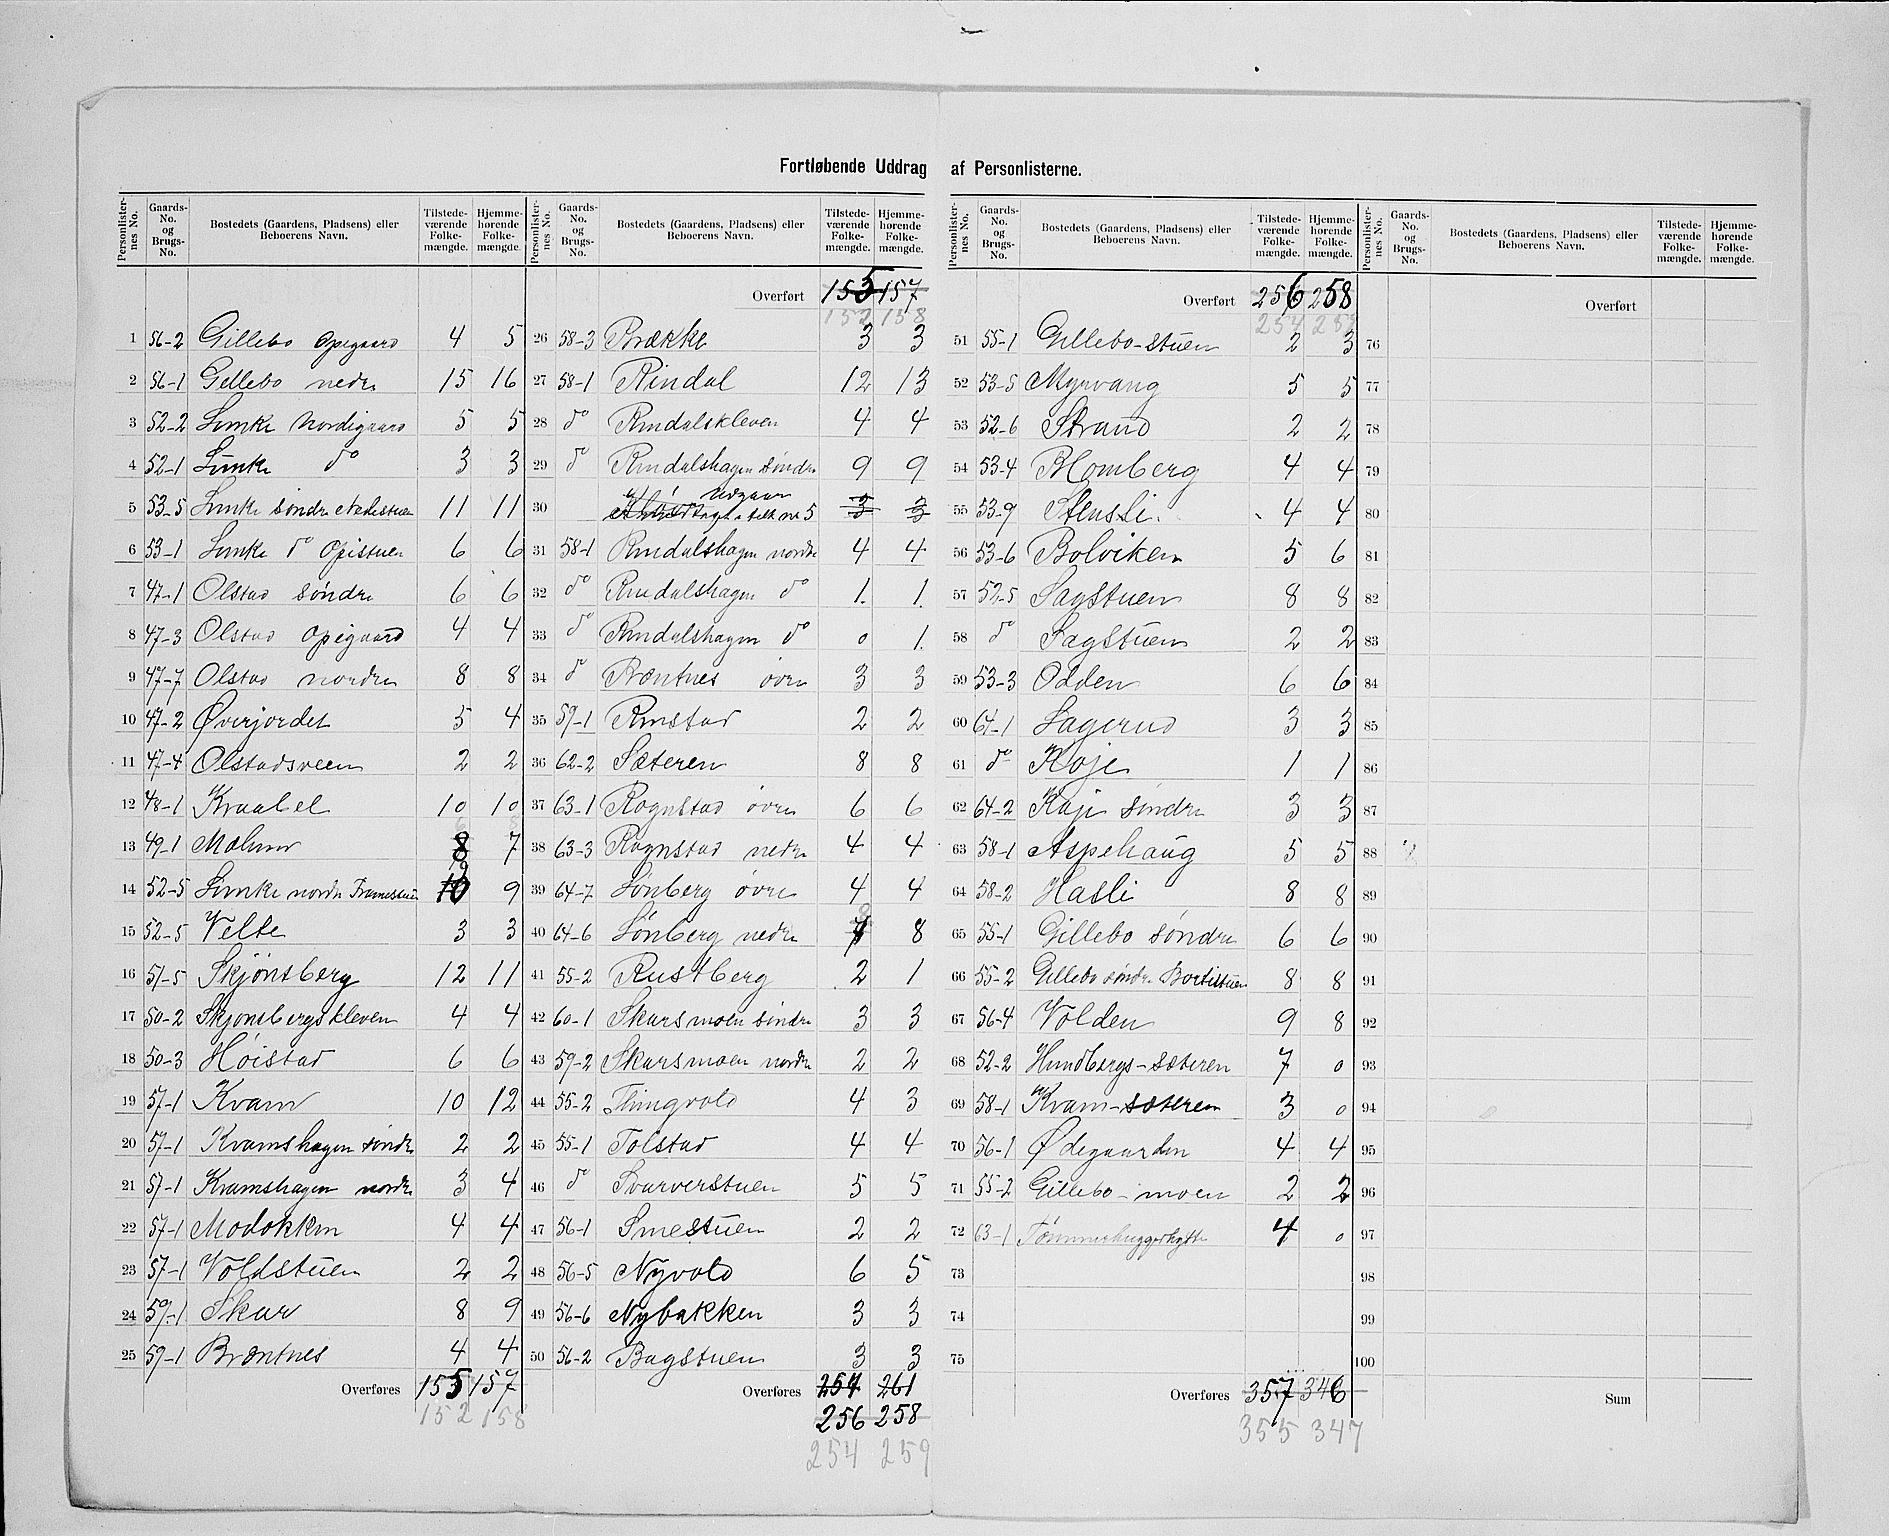 Fortløbende Uddrag af Personlisterne.
Personlister-nes No. Gaards-No. og Brugs-No. Bostedets (Gaardens, Pladsens) eller Beboerens Navn. Tilstede-værende Folke-mængde. Hjemme-hørende Folke-mængde.
1 56-2 Gillebo Opigaard 4 5
2 56-1 Gillebo nedre 15 16
3 52-2 Lunke Nordigaard 5 5
4 52-1 Lunke do 3 3
5 53-5 Lunke søndre Nedistuen 11 11
6 53-1 Lunke do Opistuen 6 6
7 47-1 Olstad søndre 6 6
8 47-3 Olstad opigaard 4 4
9 47-7 Olstad nordre 8 8
10 47-2 Øverjordet 5 4
11 47-4 Olstadsveen 2 2
12 48-1 Kraabel 10 10
13 49-1 Mælum 8 7
14 52-5 Lunke nordre Framistuen 10 9
15 52-5 Velte 3 3
16 51-5 Skjønsberg 12 11
17 50-2 Skjønsbergskleven 4 4
18 50-3 Høistad 6 6
19 57-1 Kvam 10 12
20 57-1 Kvamshagen søndre 2 2
21 57-1 Kvamshagen nordre 3 4
22 57-1 Modokken 4 4
23 57-1 Voldstuen 2 2
24 59-1 Skar 8 9
25 59-1 Bræntnes 4 4
Overføres 155 157
152 158
Personlister-nes No. Gaards-No. og Brugs-No. Bostedets (Gaardens, Pladsens) eller Beboerens Navn. Tilstede-værende Folke-mængde. Hjemme-hørende Folke-mængde.
Overført 155 157
152 158
26 58-3 Brække 3 3
27 58-1 Rindal 12 13
28 do Rindalskleven 4 4
29 do Rindalshagen søndre 9 9
30 Udgaar 3 3
31 58-1 Rindalshagen nordre 4 4
32 do Rindalshagen do 1. 1.
33 do Rindalshagen do 0 1.
34 do Bræntnes øvre 3 3
35 59-1 Rinstad 2 2
36 62-2 Sæteren 8 8
37 63-1 Rognstad øvre 6 6
38 63-3 Rognstad nedre 4 4
39 64-7 Lønberg øvre 4 4
40 64-6 Lønberg nedre 7 8
41 55-2 Rustberg 2 1
42 60-1 Skarsmoen søndre 3 3
43 59-2 Skarsmoen nordre 2 2
44 55-2 Thingvold 4 3
45 55-1 Tolstad 4 4
46 do Svarverstuen 5 5
47 56-1 Smestuen 2 2
48 56-5 Nyvold 6 5
49 56-6 Nybakken 3 3
50 56-2 Bagstuen 3 3
Overføres 257 261
256 258
254 259
Personlister-nes No. Gaards-No. og Brugs-No. Bostedets (Gaardens, Pladsens) eller Beboerens Navn. Tilstede-værende Folke-mængde. Hjemme-hørende Folke-mængde.
Overført 256 258
254 259
51 55-1 Gillebo-stuen 2 3
52 53-5 Myrvang 5 5
53 52-6 Strand 2 2
54 53-4 Blomberg 4 4
55 53-9 Stensli 4 4
56 53-6 Bolviken 5 6
57 52-5 Sagstuen 8 8
58 do Sagstuen 2 2
59 53-3 Odden 6 6
60 64-1 Sagerud 3 3
61 do Koje 1 1
62 64-2 Koje søndre 3 3
63 58-1 Aspehaug 5 5
64 58-2 Hasli 8 8
65 55-1 Gillebo søndre 6 6
66 55-2 Gillebo søndre Bortistuen 8 8
67 56-4 Volden 9 8
68 52-2 Hundbergs-sæteren 7 0
69 58-1 Kvam-sæteren 3 0
70 56-1 Ødegaarden 4 4
71 55-2 Gillebo-moen 2 2
72 63-1 Tømmerhuggerhytte 4 0
73
74
75
Overføres 357 346
355 347
Personlister-nes No. Gaards-No. og Brugs-No. Bostedets (Gaardens, Pladsens) eller Beboerens Navn. Tilstede-værende Folke-mængde. Hjemme-hørende Folke-mængde.
Overført
76
77
78
79
80
81
82
83
84
85
86
87
88
89
90
91
92
93
94
95
96
97
98
99
100
Sum